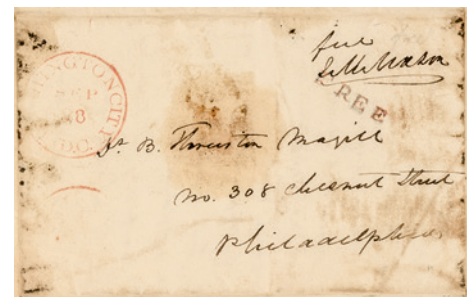 free
FREE
WASHINGTON CITY
SEP
8
D.C.
B. Thruston Magill
No. 308 Chesnut Street
Philadelphia